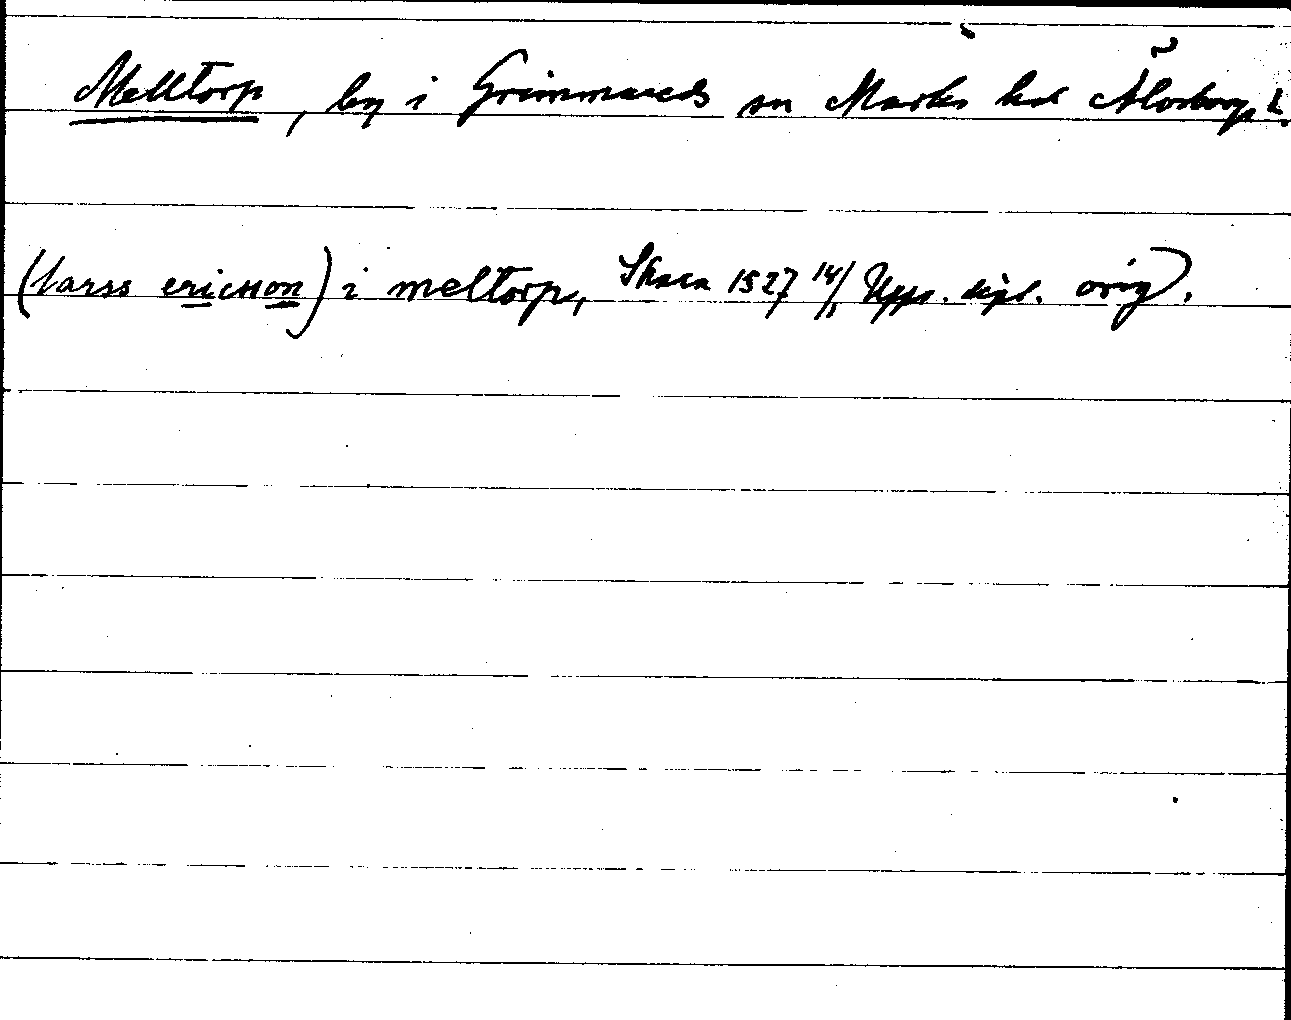 Melltorp, by i Grimmareds sn Marks hd Älvsborgs l.
(larss ericsson) i meltorp, Skara 1527 14/1 Upps. dipl. orig.